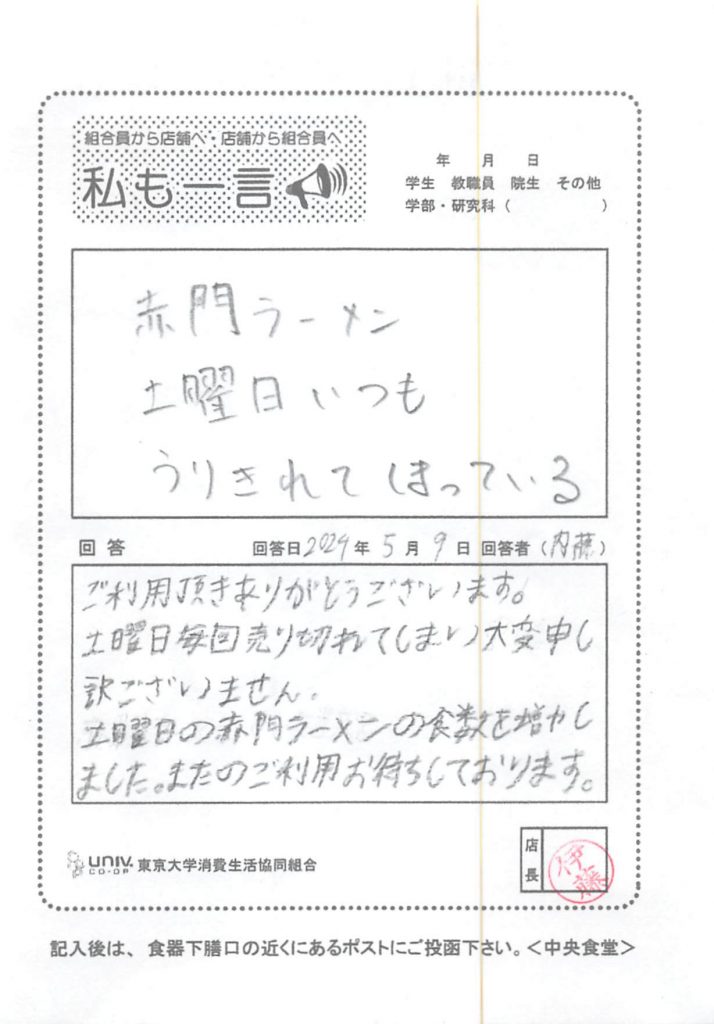 組合員から店舗へ・店舗から組合員へ
私も一言
年 月 日
学生 教職員 院生 その他
学部・研究科（ ）
赤門ラーメン
土曜日いつも
うりきれてしまっている
回答 回答日2024年5月9日 回答者（内藤）
ご利用頂きありがとうございます。
土曜日毎回売り切れてしまい大変申し
訳ございません。
土曜日の赤門ラーメンの食数を増やし
ました。またのご利用お待ちしております。
UNIV.
CO-OP
東京大学消費生活協同組合
店長
伊藤
記入後は、食器下膳口の近くにあるポストにご投函下さい。＜中央食堂＞